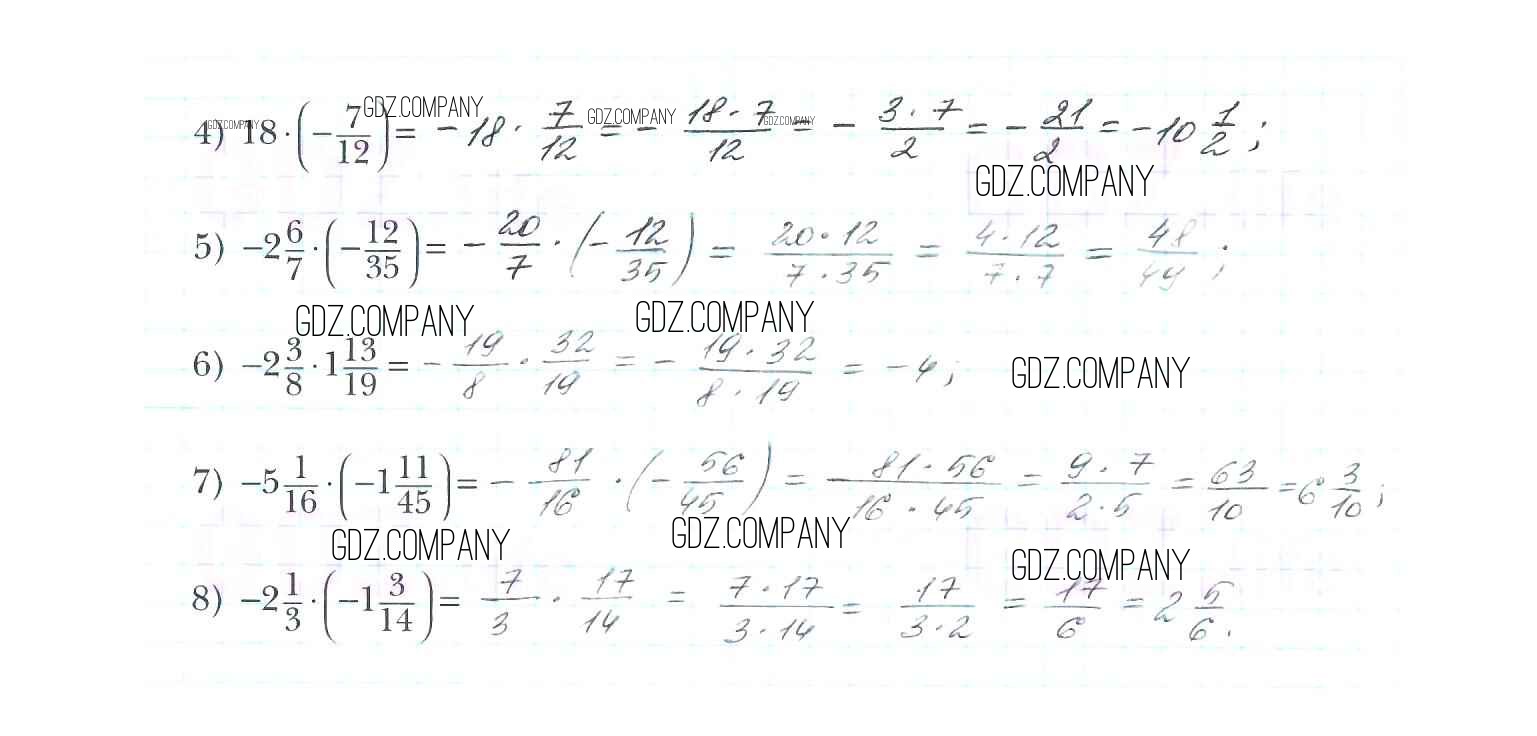 4) 18 · (−7/12) = −18 · 7/12 = − 18·7/12 = − 3·7/2 = − 21/2 = −10 1/2;
GDZ.COMPANY GDZ.COMPANY GDZ.COMPANY GDZ.COMPANY
GDZ.COMPANY
5) −2 6/7 · (−12/35) = − 20/7 · (− 12/35) = 20·12/7·35 = 4·12/7·7 = 48/49;
GDZ.COMPANY GDZ.COMPANY
6) −2 3/8 · 1 13/19 = − 19/8 · 32/19 = − 19·32/8·19 = −4;
GDZ.COMPANY
7) −5 1/16 · (−1 11/45) = − 81/16 · (− 56/45) = 81·56/16·45 = 9·7/2·5 = 63/10 = 6 3/10;
GDZ.COMPANY GDZ.COMPANY GDZ.COMPANY
8) −2 1/3 · (−1 3/14) = 7/3 · 17/14 = 7·17/3·14 = 17/3·2 = 17/6 = 2 5/6.